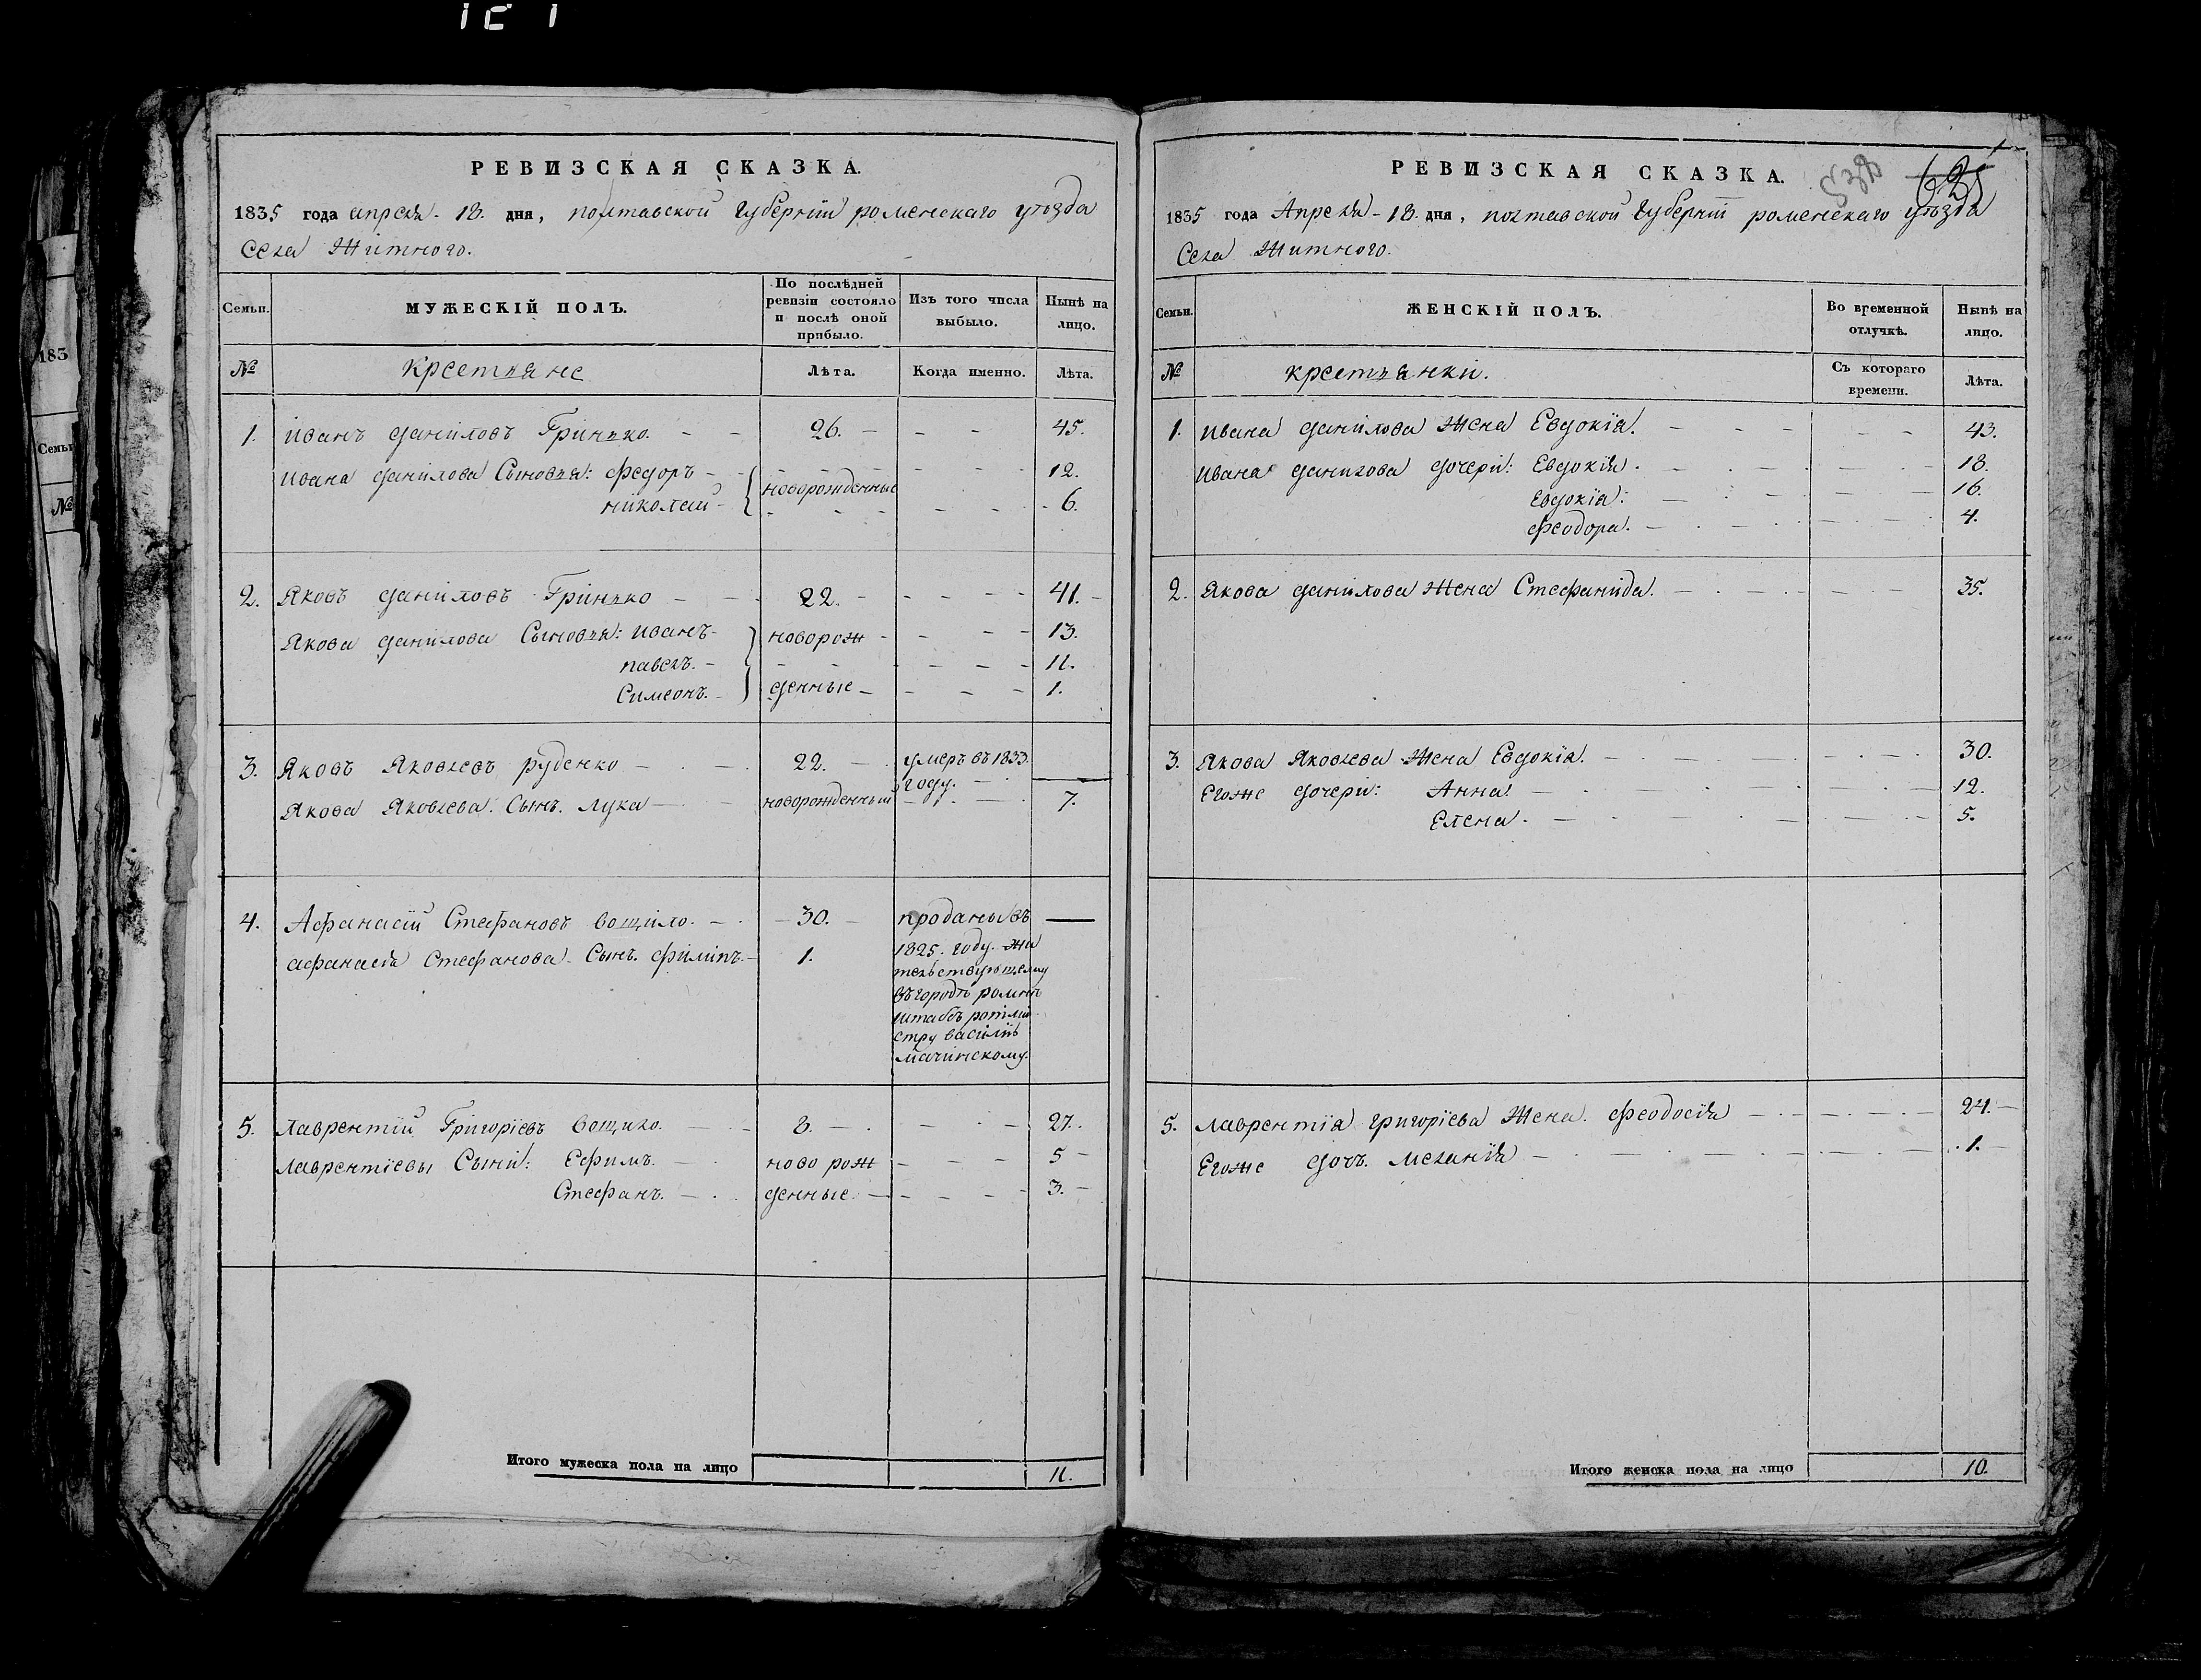 183
Семьи
№
РЕВИЗСКАЯ СКАЗКА.
1835 года апреля. 18. дня, полтавской губерніи роменскаго уѣзда
Села Житного.
Семьи.
МУЖЕСКІЙ ПОЛЪ.
По послѣдней
ревизіи состояло
и послѣ оной
прибыло.
Изъ того числа
выбыло.
Нынѣ на
лицо.
№
крестьяне
Лѣта.
Когда именно.
Лѣта.
1. иванъ даніловъ Грінько. 26. 45.
ивана данілова Сыновья: федоръ 12.
новорожденные
ніколай 6.
2. Яковъ даніловъ Грінько 22. 41.
Якова данилова Сыновья: иванъ новорож 13.
павелъ. 11.
Симеонъ. денные 1.
3. Яковъ Яковлевъ руденко 22. умеръ въ 1833.
году.
Якова Яковлева. Сынъ. лука новорожденный 7.
4. Афанасій Стефановъ вощіло. 30. проданы въ
афанасія Стефанова. Сынъ. филіпъ. 1. 1825. году. жи
тельствующему
въ городѣ ромнѣ
штабъ ротми
стру василію
мачинскому.
5. лаврентій Грігоріевъ вощило. 8. 27.
лаврентіевы Сыни: Ефимъ. ново рож 5
Стефанъ. денные 3.
Итого мужеска пола на лицо 11.
РЕВИЗСКАЯ СКАЗКА.
538
625
1835 года Апреля 18. дня, полтавской Губерніи роменскаго уѣзда
Села Житного.
Семьи.
ЖЕНСКІЙ ПОЛЪ.
Во временной
отлучкѣ.
Нынѣ на
лицо.
№
крестьянки.
Съ котораго
времени.
Лѣта.
1. ивана данілова Жена Евдокія. 43.
ивана данилова дочери: Евдокія. 18.
Евдокія: 16.
феодора. 4.
2. Якова данілова Жена Стефанида. 35.
3. Якова Яковлева Жена Евдокія. 30.
Егоже дочери: Анна. 12.
Елена. 5.
5. лаврентія григоріева Жена. феодосія 24.
Егоже дочъ. меланія 1.
Итого женска пола на лицо 10.